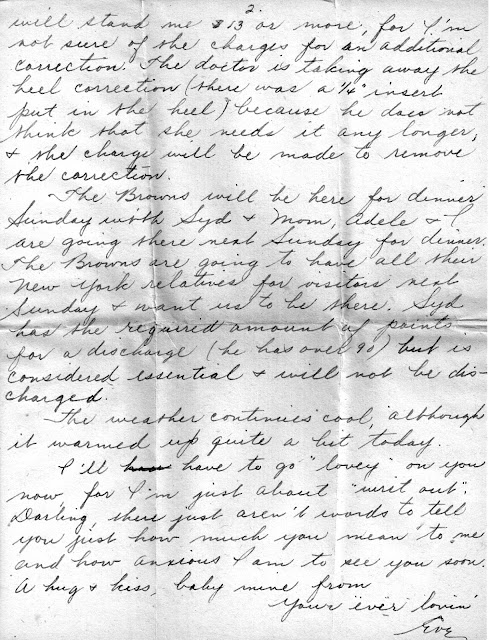 2.
will stand me $13 or more, for I'm
not sure of the charges for an additional
correction. The doctor is taking away the
heel correction (there was a 1/4" insert
put in the heel) because he does not
think that she needs it any longer,
& the charge will be made to remove
the correction.
The Browns will be here for dinner
Sunday with Syd & Mom, Adele & I
are going there next Sunday for dinner.
The Browns are going to have all their
New York relatives for visitors next
Sunday & want us to be there. Syd
has the required amount of points
for a discharge (he has over 90) but is
considered essential & will not be dis-
charged.
The weather continues cool, although
it warmed up quite a bit today.
I'll have to go "lovey" on you
now for I'm just about "writ out".
Darling, there just aren't words to tell
you just how much you mean to me
and how anxious I am to see you soon.
A hug & kiss, baby mine from
Your ever lovin'
Eve